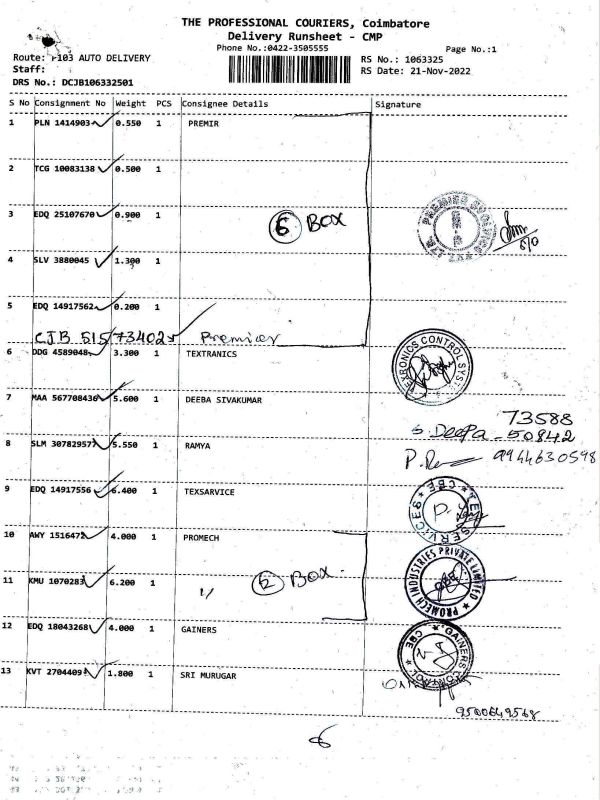 THE PROFESSIONAL COURIERS, Coimbatore
Delivery Runsheet - CMP
Phone No.:0422-3505555
Page No.:1
Route: F103 AUTO DELIVERY
RS No.: 1063325
Staff:
RS Date: 21-Nov-2022
DRS No.: DCJB106332501
S No Consignment No Weight PCS Consignee Details Signature
1 PLN 1414903 0.550 1 PREMIR
2 TCG 10083138 0.500 1
3 EDQ 25107670 0.900 1
6 BOX
PREMIER
4 SLV 3880045 1.300 1
5 EDQ 14917562 0.200 1
CJB 51573402 Premier
6 DDG 4589048 3.300 1 TEXTRANICS
TEXRONICS CONTROL SYSTEMS
7 MAA 567708436 5.600 1 DEEBA SIVAKUMAR
73588
S. Deepa - 50842
8 SLM 307829577 5.550 1 RAMYA
9944630598
9 EDQ 14917556 6.400 1 TEXSARVICE
SERVICES * CBE *
10 AWY 1516472 4.000 1 PROMECH
PROMECH INDUSTRIES PRIVATE LIMITED
11 KMU 1070283 6.200 1
2 BOX
12 EDQ 18043268 4.000 1 GAINERS
GAINERS CONTROL * CBE
13 KVT 2704409 1.800 1 SRI MURUGAR
9500649568
6